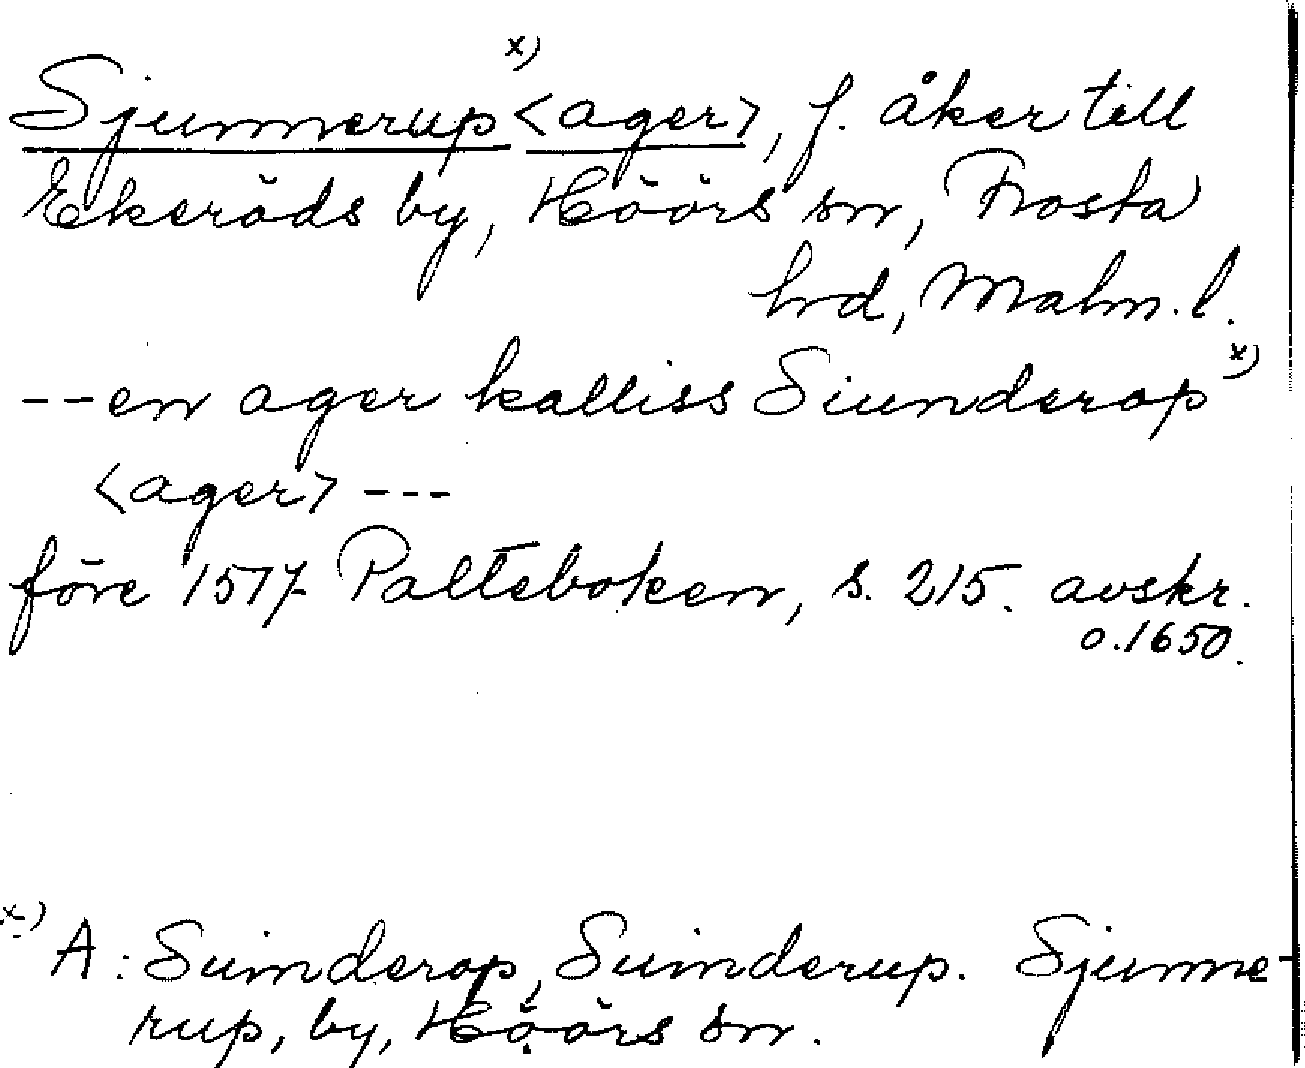 Sjunnerup x) <ager>, f. åker till
Ekeröds by, Höörs sn, Frosta
hrd, Malm. l.
-- en ager kalliss Siunderop x)
<ager> ---
före 1517. Palteboken, s. 215. avskr.
o. 1650.
x) A: Suinderop, Suinderup. Sjunne-
rup, by, Höörs sn.